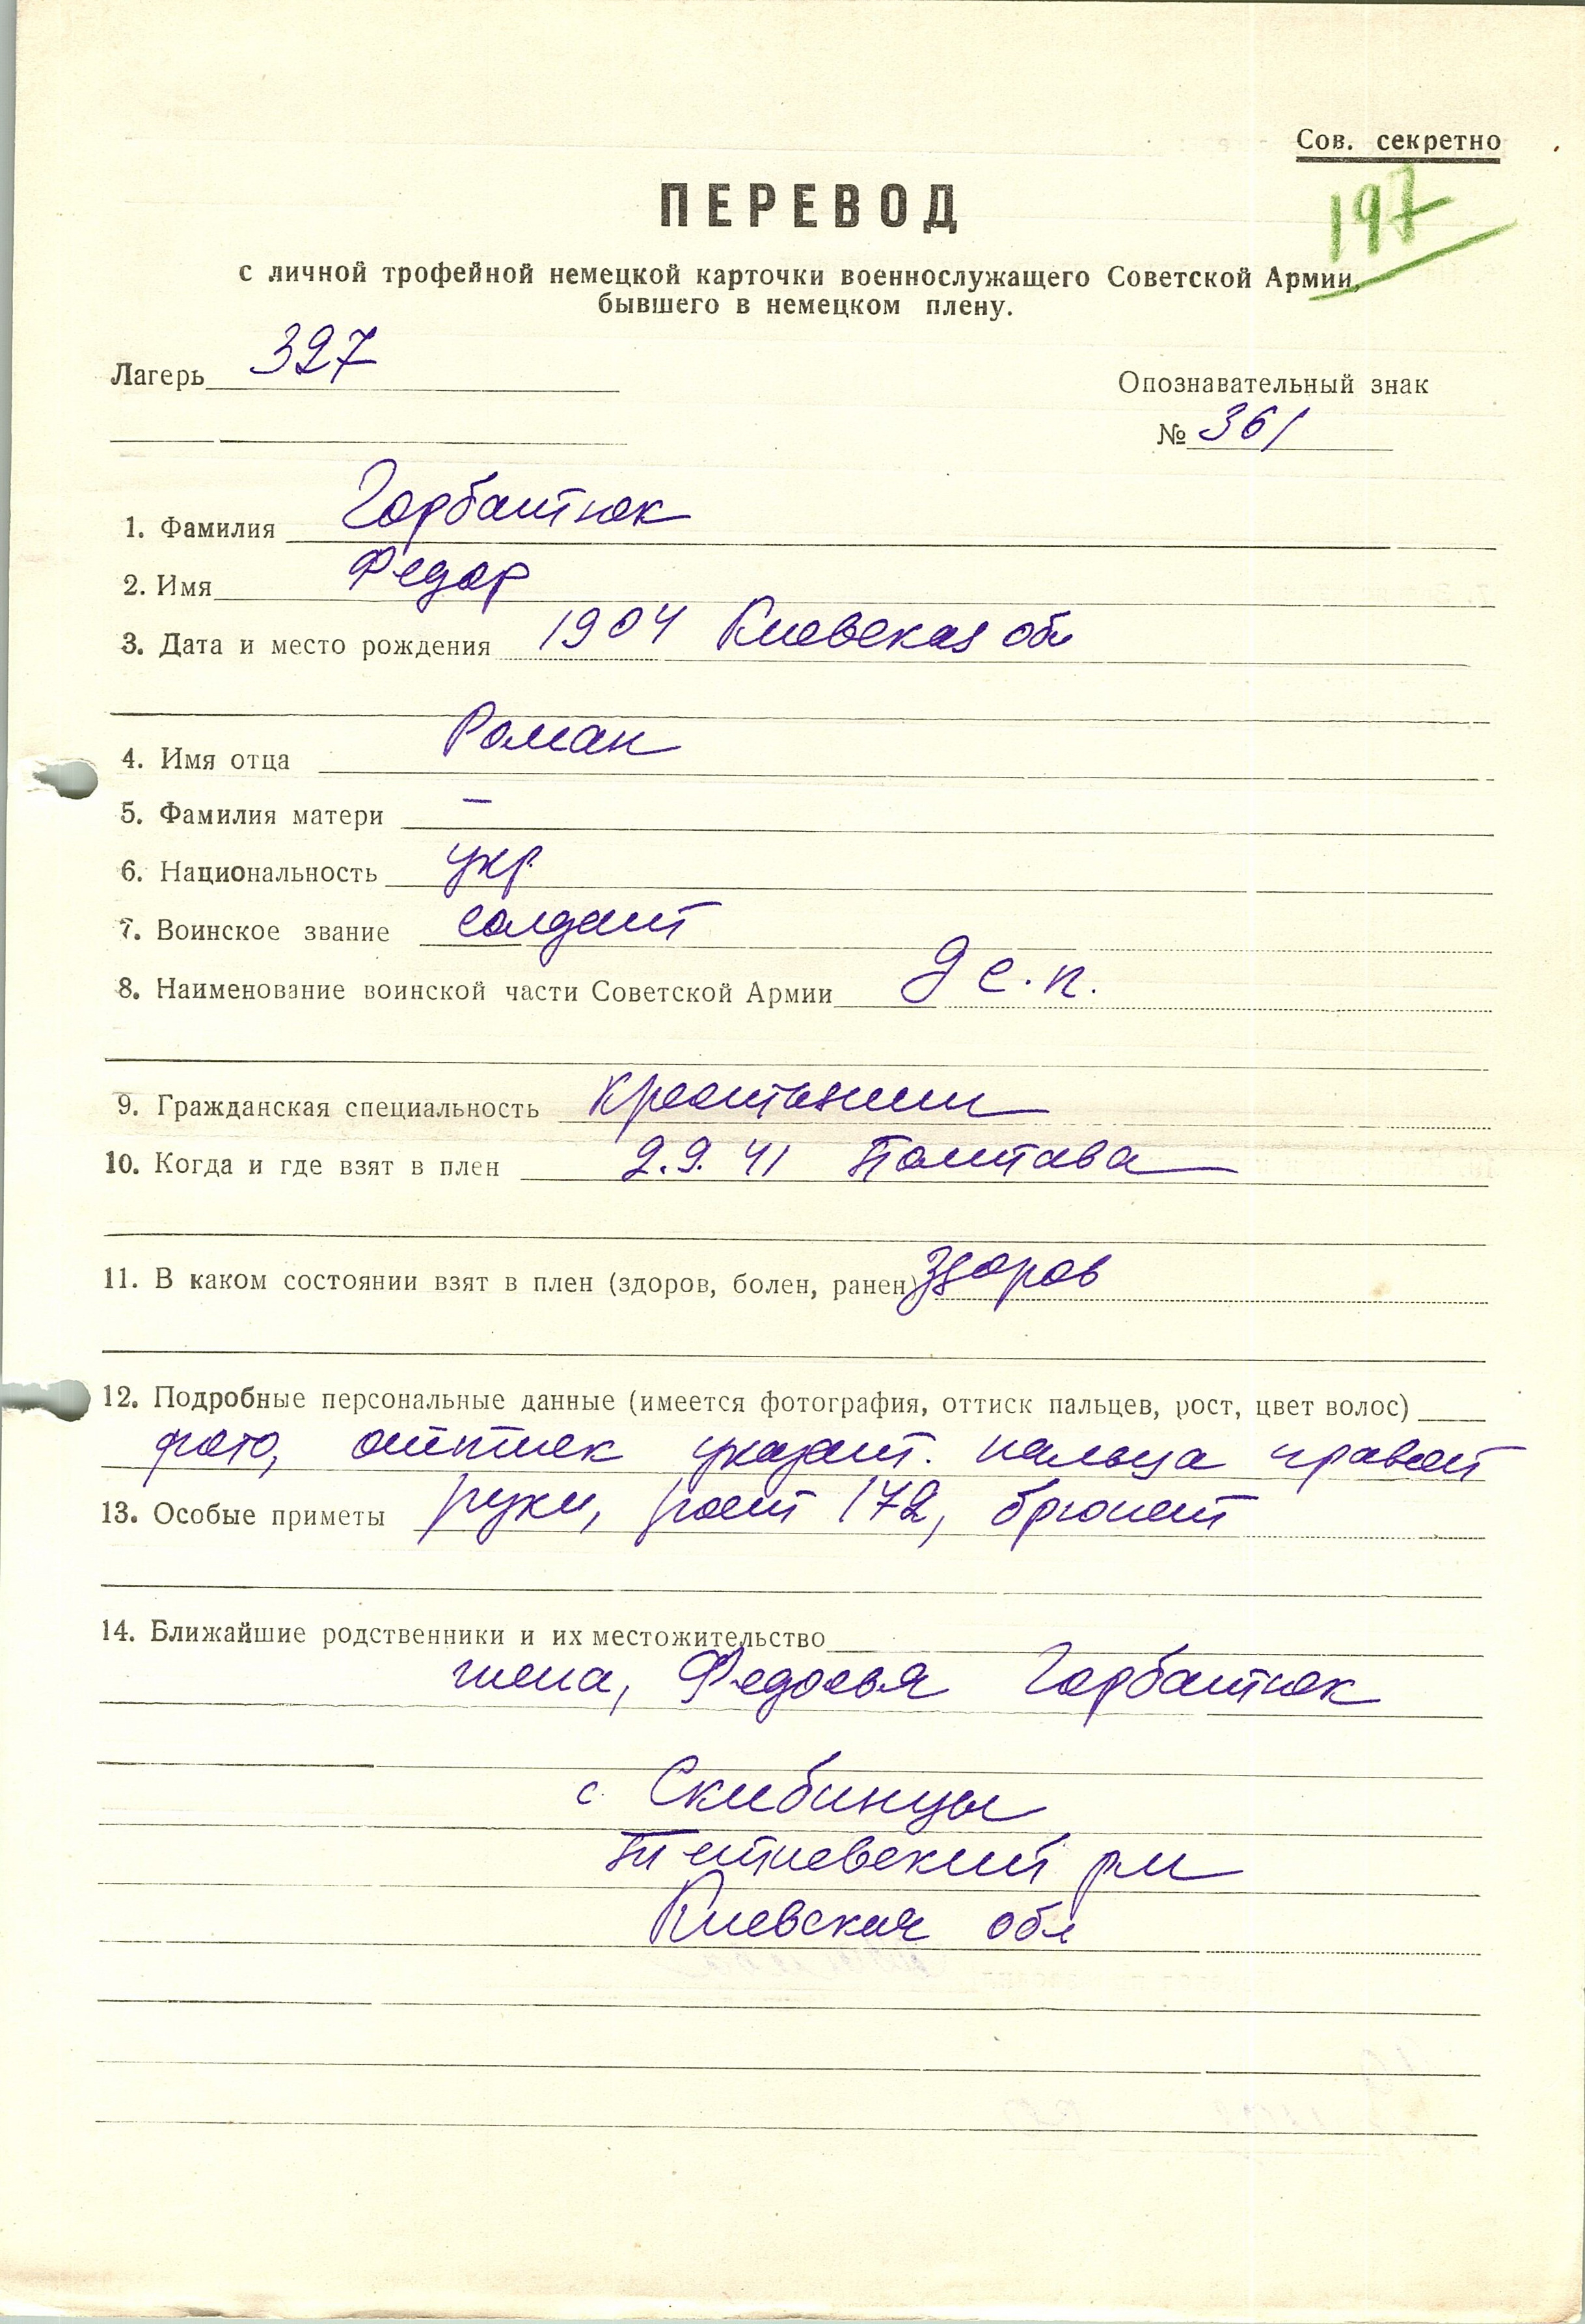 Сов. секретно
197
ПЕРЕВОД
с личной трофейной немецкой карточки военнослужащего Советской Армии,
бывшего в немецком плену.
Лагерь 327
Опознавательный знак
№ 361
1. Фамилия Горбатюк
2. Имя Федор
3. Дата и место рождения 1904 Киевская обл
4. Имя отца Роман
5. Фамилия матери –
6. Национальность укр.
7. Воинское звание солдат
8. Наименование воинской части Советской Армии 9 с.п.
9. Гражданская специальность крестьянин
10. Когда и где взят в плен 2.9.41 Полтава
11. В каком состоянии взят в плен (здоров, болен, ранен) здоров
12. Подробные персональные данные (имеется фотография, оттиск пальцев, рост, цвет волос)
фото, оттиск указат. пальца правой
13. Особые приметы руки, рост 172, брюнет
14. Ближайшие родственники и их местожительство
жена, Федосья Горбатюк
с. Скибинцы
Тетиевский р-н
Киевская обл